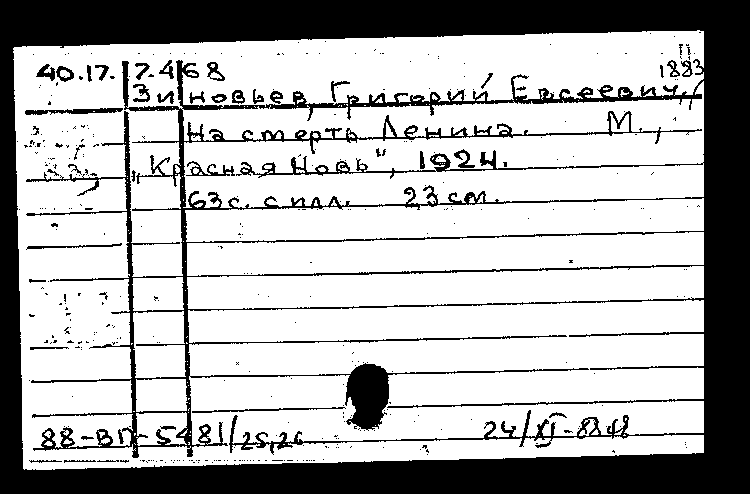 40.17. 7.468
1883
Зиновьев, Григорий Евсеевич,
На смерть Ленина. М.,
„Красная Новь", 1924.
63 с. с илл. 23 см.
88-ВП-5481/25,26
24/XI-88